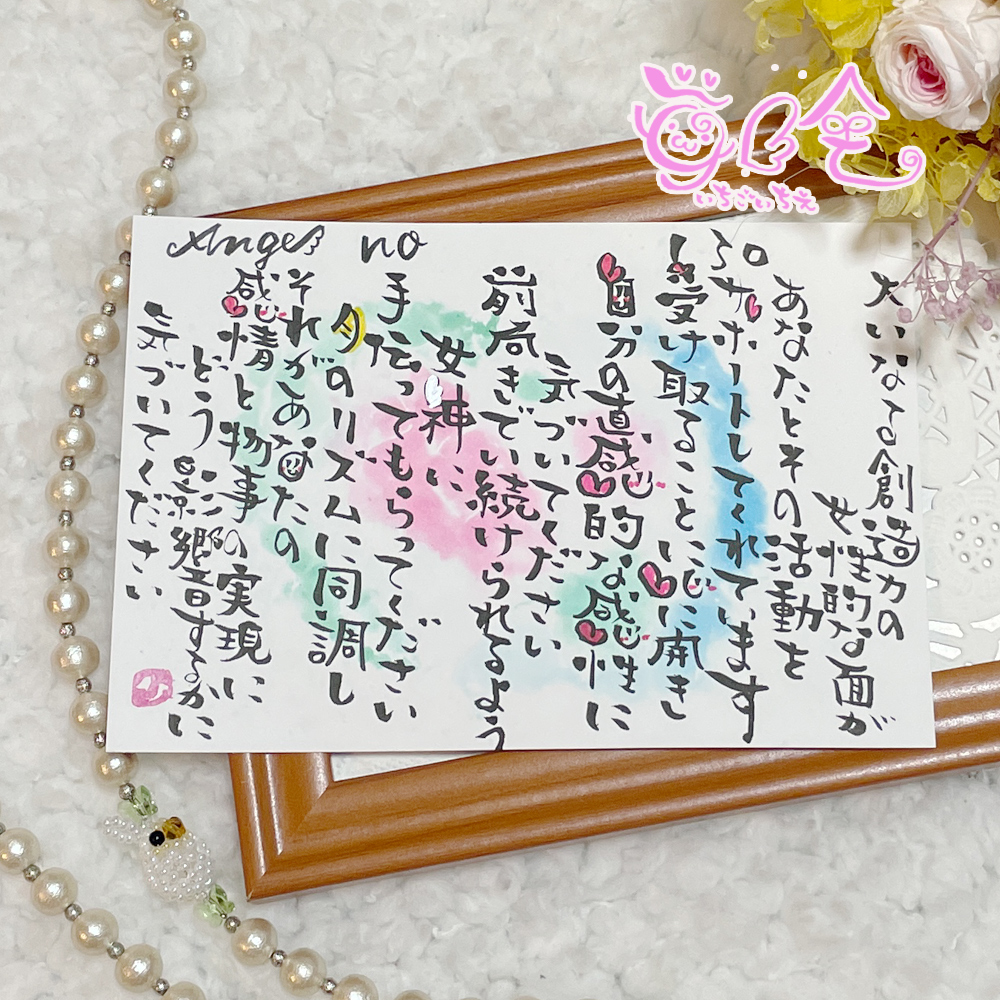 Angel no 30
大いなる創造力の
女性的な面が
あなたとその活動を
サポートしてくれています
受け取ることに心に開き
自分の直感的な感性に
気づいてください
前向きでい続けられるよう
女神に
手伝ってもらってください
月のリズムに同調し
それがあなたの
感情と物事の実現に
どう影響するかに
気づいてください
いちごいちえ